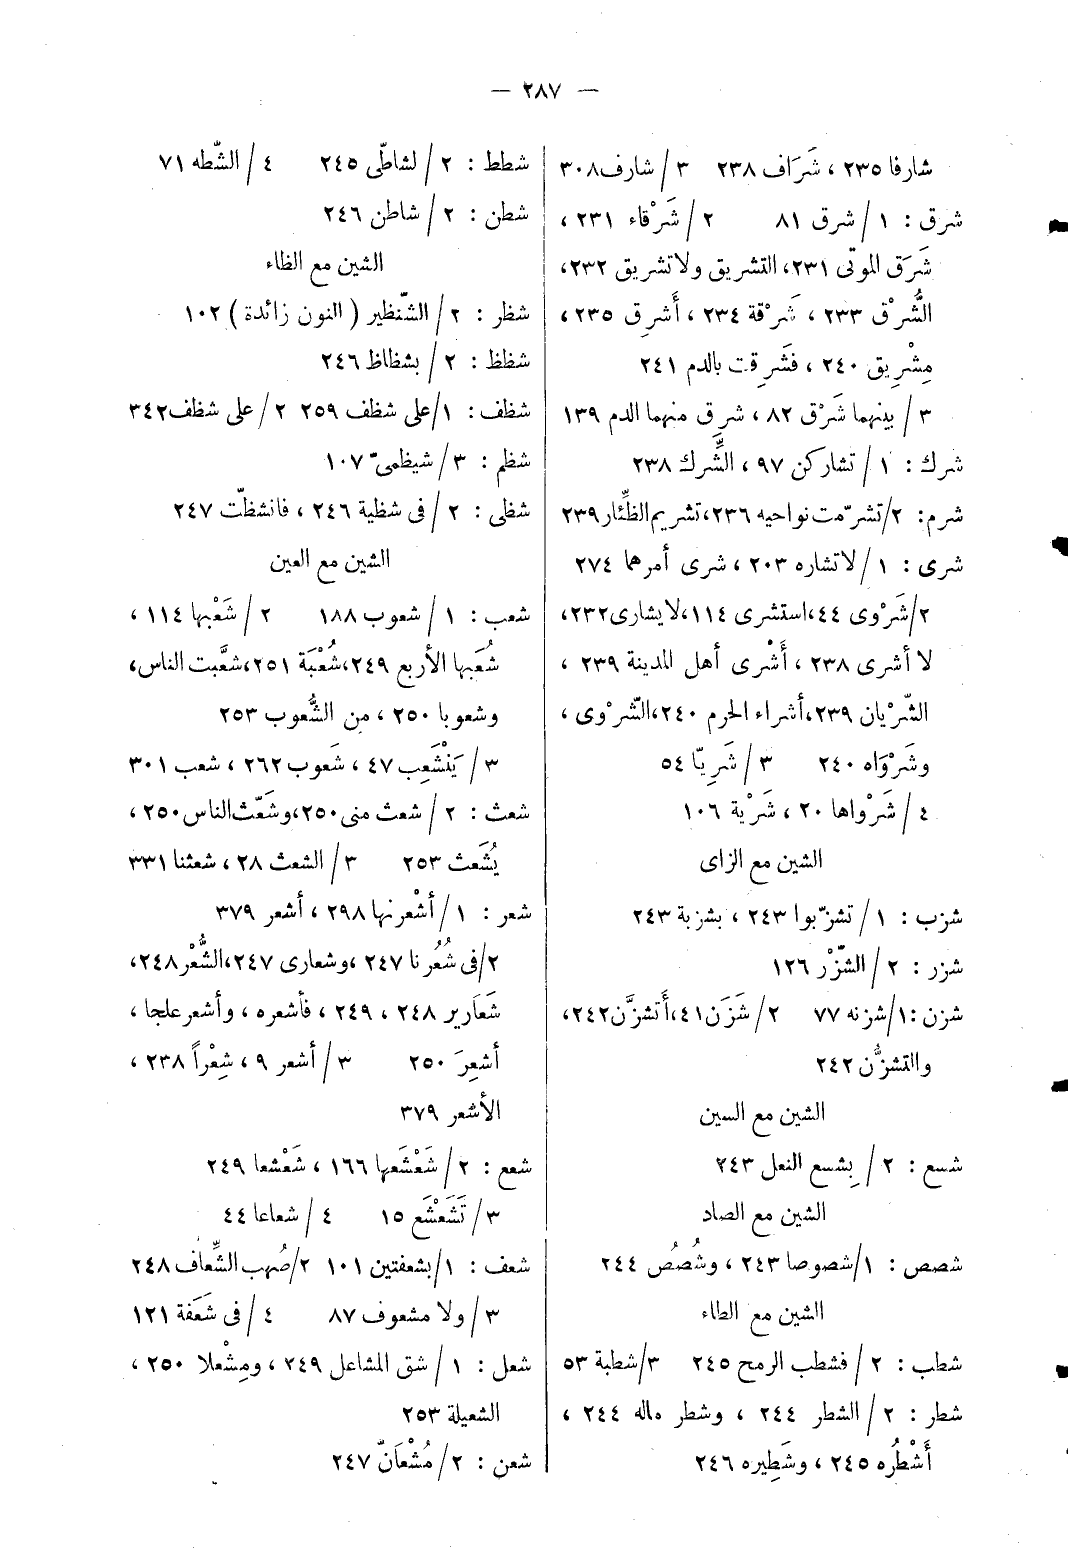 — ٢٨٧ —
شارفا ٢٣٥ ، شَرَاف ٢٣٨ ٣ / شارف ٣٠٨
شرق : ١ / شرق ٨١ ٢ / شَرْقاء ٢٣١ ،
شَرَق الموتى ٢٣١، التشريق ولا تشريق ٢٣٢،
الشُّرْق ٢٣٣ ، شَرْقة ٢٣٤ ، أَشرق ٢٣٥ ،
مِشْرِيق ٢٤٠ ، فشَرِقت بالدم ٢٤١
٣ / بينهما شَرْق ٨٢ ، شرق منهما الدم ١٣٩
شرك : ١ / تشاركن ٩٧ ، الشِّرك ٢٣٨
شرم: ٢/ تشرّمت نواحيه ٢٣٦، تشريم الظِّئار ٢٣٩
شرى : ١ / لا تشاره ٢٠٣ ، شرى أمرهما ٢٧٤
٢/ شَرْوى ٤٤، استشرى ١١٤، لا يشارى ٢٣٢،
لا أشرى ٢٣٨ ، أَشْرى أهل المدينة ٢٣٩ ،
الشّرْيان ٢٣٩، أشراء الحرم ٢٤٠، الشّرْوى ،
وشَرْوَاه ٢٤٠ ٣ / شَرِيّا ٥٤
٤ / شَرْواها ٢٠ ، شَرْية ١٠٦
الشين مع الزاى
شزب : ١ / تشزّبوا ٢٤٣ ، بشزبة ٢٤٣
شزر : ٢ / الشّزْر ١٢٦
شزن : ١/ شزنه ٧٧ ٢ / شَزَن ٤١، أَتشزَّن ٢٤٢،
والتشزُّن ٢٤٢
الشين مع السين
شسع : ٢ / بِشسع النعل ٢٤٣
الشين مع الصاد
شصص : ١/ شصوصا ٢٤٣ ، وشُصُص ٢٤٤
الشين مع الطاء
شطب : ٢ / فشطب الرمح ٢٤٥ ٣/ شطبة ٥٣
شطر : ٢ / الشطر ٢٤٤ ، وشطر ماله ٢٤٤ ،
أَشْطُره ٢٤٥ ، وشَطِيره ٢٤٦
شطط : ٢ / لشاطّى ٢٤٥ ٤ / الشّطه ٧١
شطن : ٢ / شاطن ٢٤٦
الشين مع الظاء
شظر : ٢ / الشّنظير ( النون زائدة ) ١٠٢
شظظ : ٢ / بشظاظ ٢٤٦
شظف : ١/ على شظف ٢٥٩ ٢ / على شظف ٣٤٢
شظم : ٣ / شيظمىّ ١٠٧
شظى : ٢ / فى شظية ٢٤٦ ، فانشظّت ٢٤٧
الشين مع العين
شعب : ١ / شعوب ١٨٨ ٢ / شَعْبها ١١٤ ،
شُعَبها الأربع ٢٤٩، شُعْبَة ٢٥١، شعَّبت الناس،
وشعوبا ٢٥٠ ، من الشُّعوب ٢٥٣
٣ / يَنْشَعِب ٤٧ ، شَعوب ٢٦٢ ، شعب ٣٠١
شعث : ٢ / شعث منى ٢٥٠، وشَعّث الناس ٢٥٠ ،
يُشَعث ٢٥٣ ٣ / الشعث ٢٨ ، شعثنا ٣٣١
شعر : ١ / أشْعرنها ٢٩٨ ، أشعر ٣٧٩
٢/ فى شُعُرنا ٢٤٧ ، وشعارى ٢٤٧، الشُّعْر ٢٤٨،
شَعَارير ٢٤٨ ، ٢٤٩ ، فأشعره ، وأشعر علجا ،
أشعِرَ ٢٥٠ ٣ / أشعر ٩ ، شِعْراً ٢٣٨ ،
الأشعر ٣٧٩
شعع : ٢ / شَعْشَعها ١٦٦ ، شَعْشعا ٢٤٩
٣ / تَشَعْشَع ١٥ ٤ / شعاعا ٤٤
شعف : ١/ بشعفتين ١٠١ ٢/ صُهب الشِّعاف ٢٤٨
٣ / ولا مشعوف ٨٧ ٤ / فى شَعَفة ١٢١
شعل : ١ / شق المشاعل ٢٤٩ ، ومِشْعلا ٢٥٠ ،
الشعيلة ٢٥٣
شعن : ٢ / مُشْعَانّ ٢٤٧